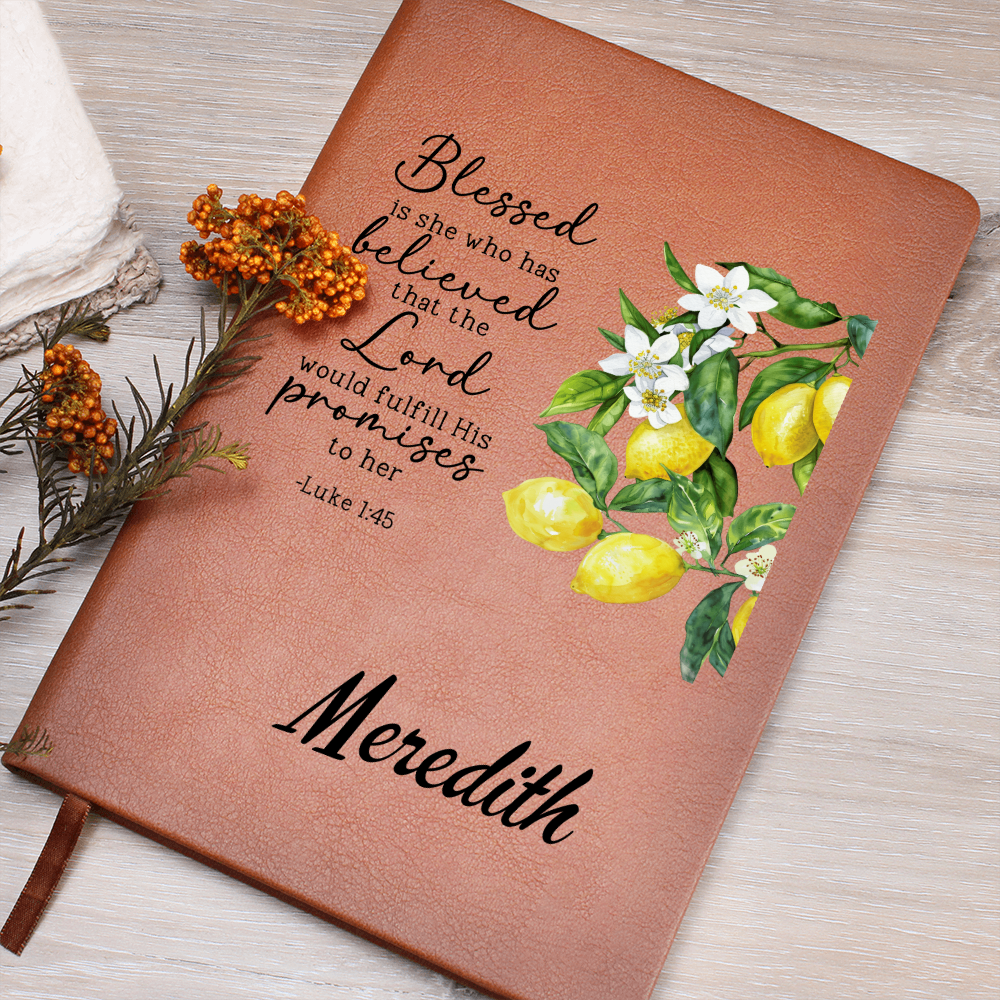 Blessed
is she who has
believed
that the
Lord
would fulfill His
promises
to her
-Luke 1:45
Meredith